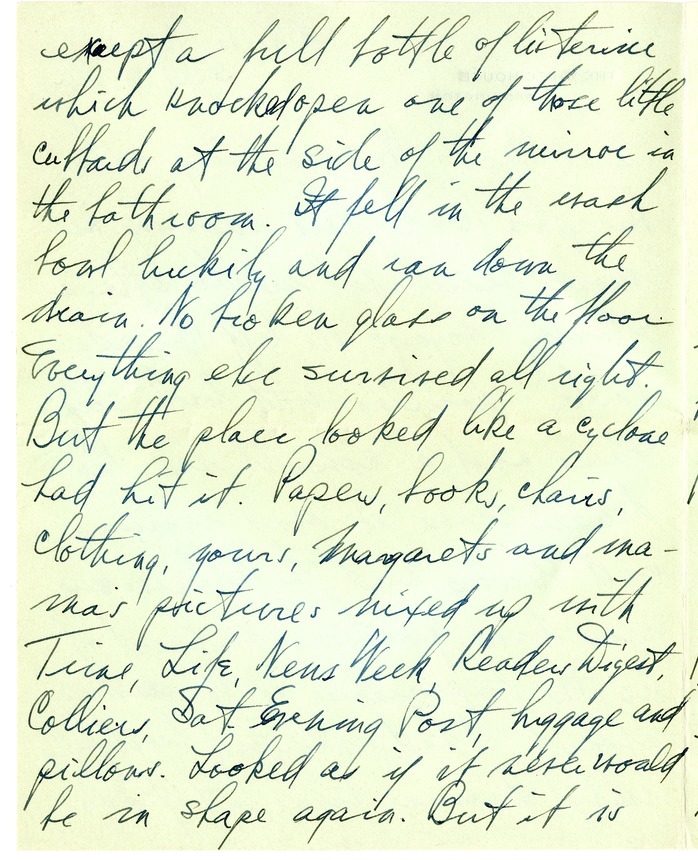 except a full bottle of listerine
which knocked open one of those little
cubbards at the side of the mirror in
the bathroom. It fell in the wash
bowl luckily and ran down the
drain. No broken glass on the floor.
Everything else survived all right.
But the place looked like a cyclone
had hit it. Papers, books, chairs,
clothing, yours, Margarets and ma-
ma's pictures mixed up with
Time, Life, News Week, Readers Digest,
Colliers, Sat Evening Post, luggage and
pillows. Looked as if it never would
be in shape again. But it is